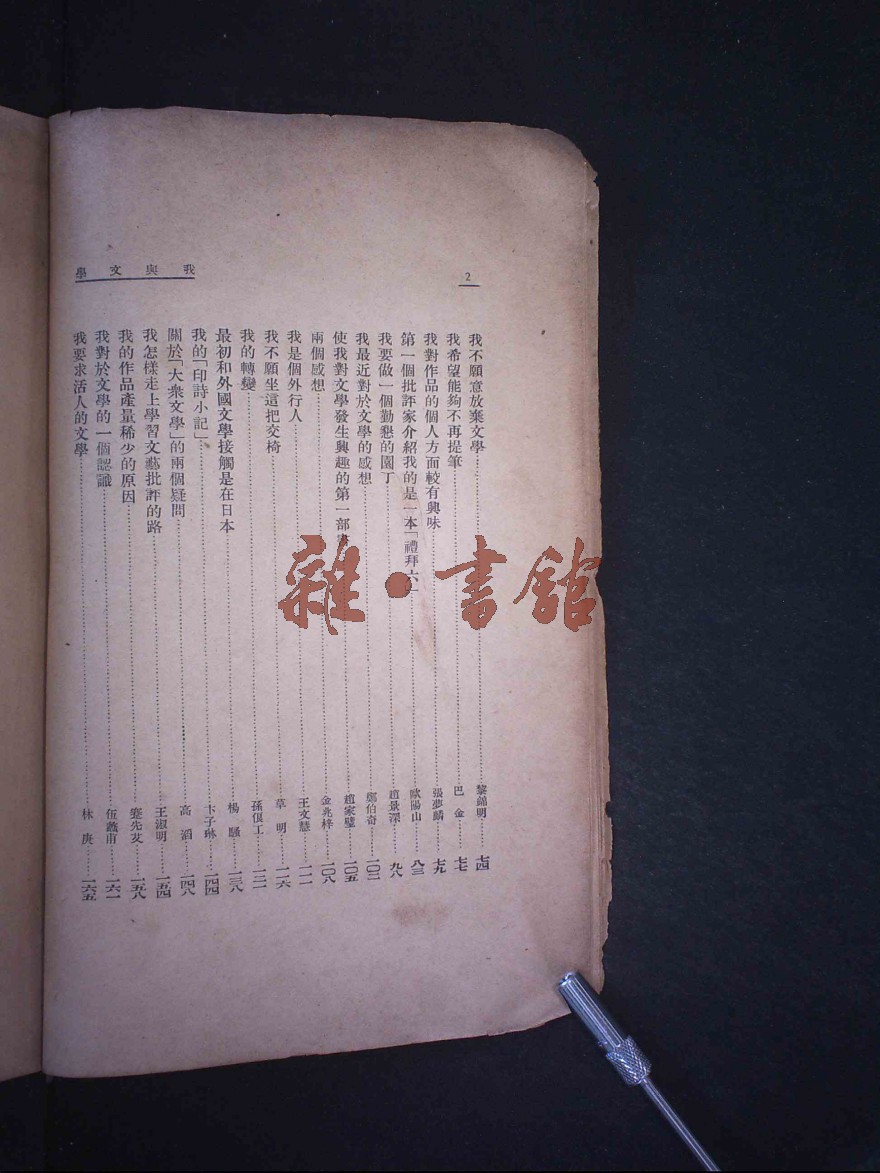 2
我與文學
我不願意放棄文學……黎錦明……七四
我希望能夠不再提筆……巴金……七七
我對作品的個人方面較有興味……張夢麟……七九
第一個批評家介紹我的是一本「禮拜六」……歐陽山……八三
我要做一個勤懇的園丁……趙景深……九八
我最近對於文學的感想……鄭伯奇……一〇二
使我對文學發生興趣的第一部書……趙家璧……一〇五
兩個感想……金兆梓……一〇八
我是個外行人……王文慧……一一一
我不願坐這把交椅……草明……一一六
我的轉變……孫俍工……一三一
最初和外國文學接觸是在日本……楊騷……一三八
我的「印詩小記」……卞子琳……一四四
關於「大衆文學」的兩個疑問……高滔……一四八
我怎樣走上學習文藝批評的路……王淑明……一五四
我的作品產量稀少的原因……蹇先艾……一五八
我對於文學的一個認識……伍蠡甫……一六一
我要求活人的文學……林庚……一六五
雜·書館